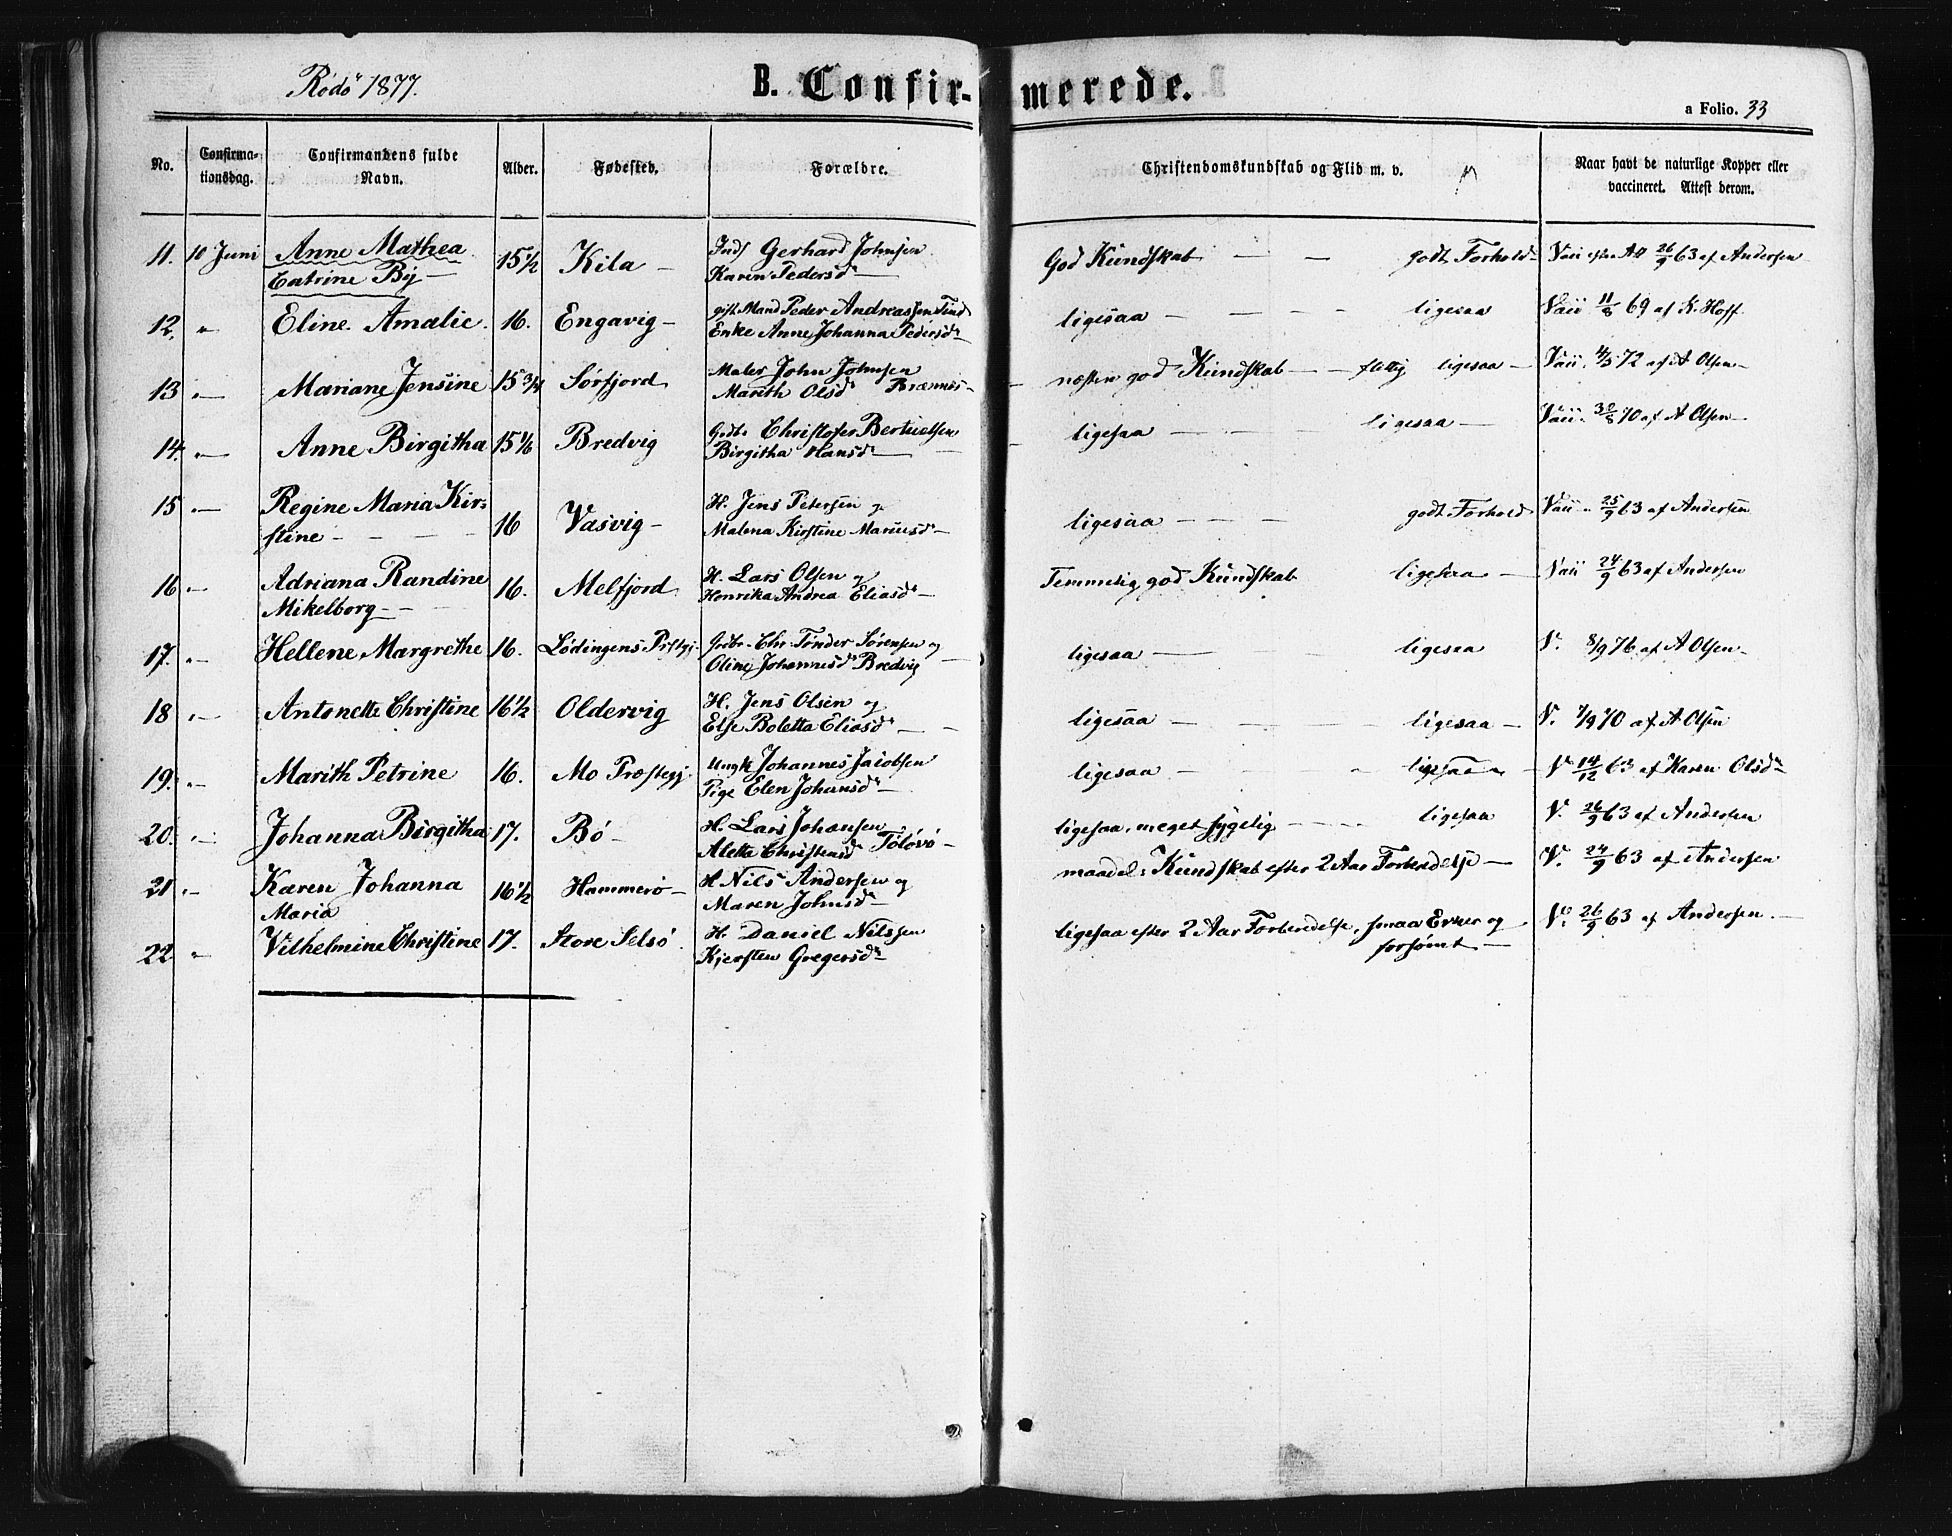 Rödö 1877.
B. Confirmerede.
a Folio. 33
No.
Confirma-
tionsdag.
Confirmandens fulde
Navn.
Alder.
Fødested.
Forældre.
Christendomskundskab og Flid m. v.
Naar havt de naturlige Kopper eller
vaccineret. Attest derom.
11. 10 Juni Anne Mathea 15 1/2 Kila - Inds Gerhard Johnsen God Kundskab - - godt Forhold Vaii efter Att 26/9 63 af Andersen
Catrine By Karen Pedersd
12. " Eline Amalie. 16. Engavig - gift Mand Peder Andreassen ligesaa - - - - ligesaa Vaii 11/8 69 af K. Hoff
Enke Anne Johanna Pedersd
13 " Mariane Jensine 15 3/4 Sörfjord Maler John Johnsen næsten god Kundskab - - flittig ligesaa - Vaii 4/5 72 af A Olsen -
Marith Olsd Brænnes -
14. " Anne Birgitha 15 1/6 Bredvig Gdbr Christofer Bertuelsen ligesaa - - - ligesaa - Vaii 30/8 70 af A Olsen -
Birgitha Hansd
15 " Regine Maria Kir= H. Jens Petersen og
stine - - - - 16 Vasvig - Malena Kirstine Mariusd - ligesaa - - - godt Forhold Vaii 25/9 63 af Andersen
16 " Adriana Randine 16. Melfjord H. Lars Olsen og Temmelig god Kundskab ligesaa - Vaii 24/9 63 af Andersen
Mikelborg - - Henrika Andrea Eliasd -
17. " Hellene Margrethe 16. Lødingens Prstgj. Grbr. Chr. Tønder Sörensen og ligesaa - - ligesaa V. 8/9 76 af A Olsen -
Oline Johannesd Bredvig
18 " Antonette Christine 16 1/2 Oldervig H. Jens Olsen og ligesaa - - - - ligesaa - V. 7/9 70 af A Olsen
Else Boletta Eliasd - -
19. " Marith Petrine 16. Mo Præstegj. Ungk Johannes Jacobsen ligesaa - - - " ligesaa - V. 14/12 63 af Karen Olsd
Pige Elen Johansd -
20. " Johanna Birgitha 17. Bö - H. Lars Johansen ligesaa, meget sygelig - - - ligesaa V. 26/9 63 af Andersen
Aletta Christensd Tölövö -
21 " Karen Johanna 16 1/2 Hammerö - H Nils Andersen og maadel: Kundskab efter 2 Aar Forberedelse - V. 24/9 63 af Andersen
Maria Maren Johnsd -
22 " Vilhelmine Christine 17. Store Selsö H. Daniel Nilssen ligesaa efter 2 Aar Forberedelse, smaa Evner og V. 26/9 63 af Andersen. -
Kjersten Gregersd - forsömt -